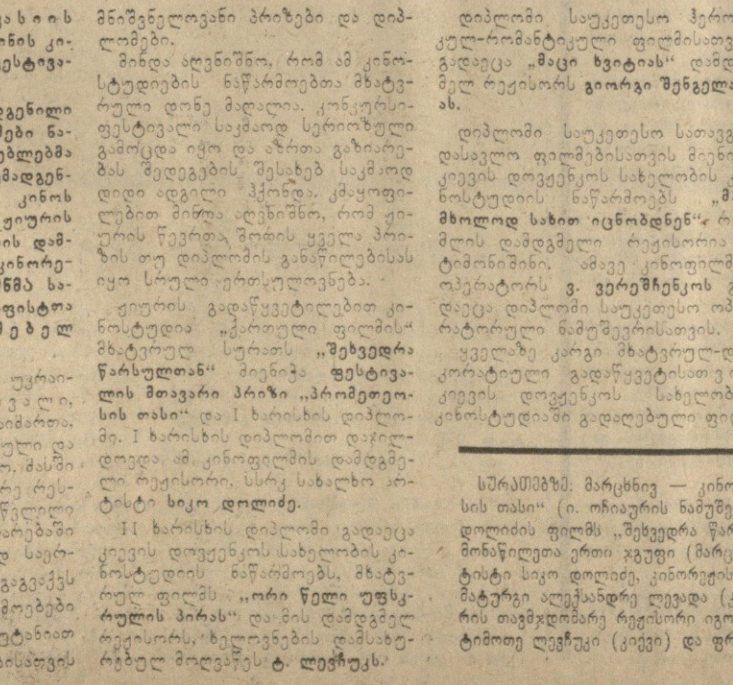 ასიის
ინის კი-
ესტივა-
დგენილი
მები ნა-
ებლებმა
მადგენ-
კინოს
ჟიურის
ის დამ-
კინორე-
ნმა სა-
ფისტთა
მებელ
უკრაი-
ვალი,
აიმართა.
ული და
ო. მასში
რე რეს-
წველილი
არებაში
დ საერ-
გაგვაქვს
მოებები
უტანიათ
ბისათვის
მნიშვნელოვანი პრიზები და დიპ-
ლომები.
მინდა აღვნიშნო, რომ ამ კინო-
სტუდიების ნაწარმოებთა მხატვ-
რული დონე მაღალია. კონკურსი-
ფესტივალი საკმაოდ სერიოზული
გამოცდა იყო და აზრთა გაზიარე-
ბას შედეგების შესახებ საკმაოდ
დიდი ადგილი ჰქონდა. კმაყოფი-
ლებით მინდა აღვნიშნო, რომ ჟი-
ურის წევრთა შორის ყველა პრი-
ზის თუ დიპლომის განაწილებისას
იყო სრული ერთსულოვნება.
ჟიურის გადაწყვეტილებით კი-
ნოსტუდია „ქართული ფილმის“
მხატვრულ სურათს „შეხვედრა
წარსულთან“ მიენიჭა ფესტივა-
ლის მთავარი პრიზი „პრომეთეო-
სის თასი“ და I ხარისხის დიპლო-
მი. I ხარისხის დიპლომით დაჯილ-
დოვდა ამ კინოფილმის დამდგმე-
ლი რეჟისორი, სსრკ სახალხო არ-
ტისტი სიკო დოლიძე.
II ხარისხის დიპლომი გადაეცა
კიევის დოვჟენკოს სახელობის კი-
ნოსტუდიის ნაწარმოებს, მხატვ-
რულ ფილმს „ორი წელი უფსკ-
რულის პირას“ და მის დამდგმელ
რეჟისორს, ხელოვნების დამსახუ-
რებულ მოღვაწეს ტ. ლევჩუკს.
დიპლომი საუკეთესო ჰერო
კულ-რომანტიკული ფილმისათვ
გადაეცა „მაცი ხვიტიას“ დამდ
მელ რეჟისორს გიორგი შენგელა
ას.
დიპლომი საუკეთესო სათავგ
დასავლო ფილმებისათვის მიენი
კიევის დოვჟენკოს სახელობის კ
ნოსტუდიის ნაწარმოებს „მ
მხოლოდ სახით იცნობდნენ“, რ
მლის დამდგმელი რეჟისორია
ტიმონიშინი. ამავე კინოფილმ
ოპერატორს ვ. ვერეშჩენკოს გ
დაეცა დიპლომი საუკეთესო ოპ
რატორული ნამუშევრისათვის.
ყველაზე კარგი მხატვრულ-დ
კორატიული გადაწყვეტისათვი
კიევის დოვჟენკოს სახელობ
კინოსტუდიაში გადაღებული ფი
სურათებზე: მარცხნივ — კინო
სის თასი“ (ი. ოჩიაურის ნამუშე
დოლიძის ფილმს „შეხვედრა წარ
მონაწილეთა ერთი ჯგუფი (მარც
ტისტი სიკო დოლიძე, კინორეჟის
მატურგი ალექსანდრე ლევადა (კ
რის თავმჯდომარე რეჟისორი იგო
ტიმოთე ლევჩუკი (კიევი) და ფრ